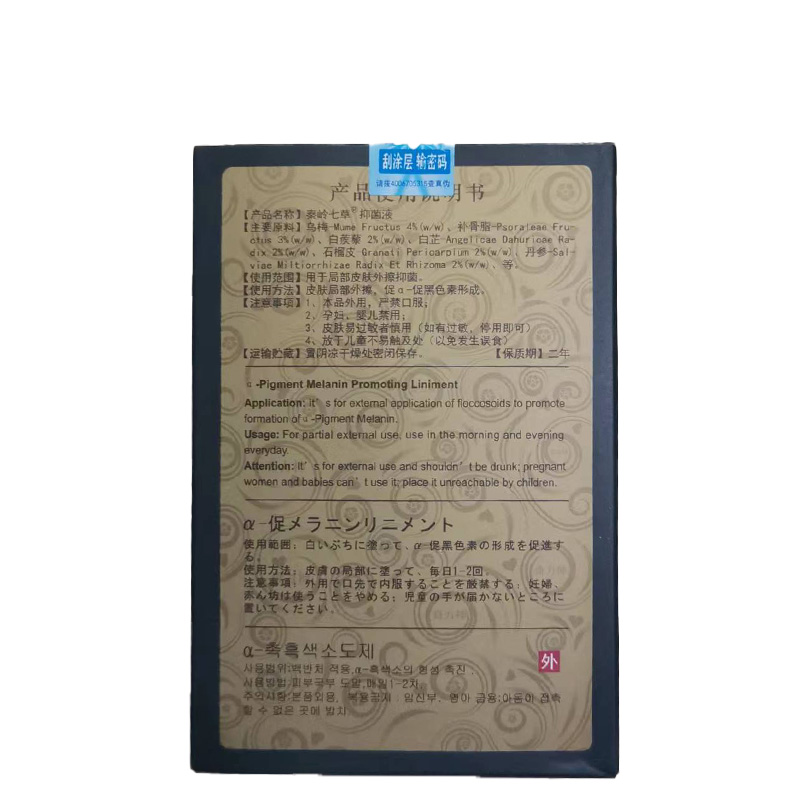 刮涂层 输密码
请拨4006705315查真伪
产品使用说明书
【产品名称】秦岭七草®抑菌液
【主要原料】乌梅-Mume Fructus 4%(w/w)、补骨脂-Psoraleae Fru-
ctus 3%(w/w)、白蒺藜 2%(w/w)、白芷 Angelicae Dahuricae Ra-
dix 2%(w/w)、石榴皮 Granati Pericarpium 2%(w/w)、丹参-Sal-
viae Miltiorrhizae Radix Et Rhizoma 2%(w/w)、等。
【使用范围】用于局部皮肤外擦抑菌。
【使用方法】皮肤局部外擦，促α-促黑色素形成。
【注意事项】1、本品外用，严禁口服；
2、孕妇，婴儿禁用；
3、皮肤易过敏者慎用（如有过敏，停用即可）
4、放于儿童不易触及处（以免发生误食）
【运输贮藏】置阴凉干燥处密闭保存。 【保质期】二年
α-Pigment Melanin Promoting Liniment
Application: It's for external application of floccosoids to promote
formation of α-Pigment Melanin.
Usage: For partial external use, use in the morning and evening
everyday.
Attention: It's for external use and shouldn't be drunk; pregnant
women and babies can't use it; place it unreachable by children.
α-促メラニンリニメント
使用範囲：白いぶちに塗って、α-促黒色素の形成を促進す
る。
使用方法：皮膚の局部に塗って、毎日1-2回。
注意事項：外用で口先で内服することを厳禁する；妊婦、
赤ん坊は使うことをやめる；児童の手が届かないところに
置いてください。
α-촉흑색소도제
사용범위:백반처 적용,α-흑색소의 형성 촉진 .
사용방법:피부국부 도말,매일1-2차.
주의사항:본품외용, 복용금지 . 임신부, 영아 금용;아동이 접촉
할 수 없은 곳에 방치.
外